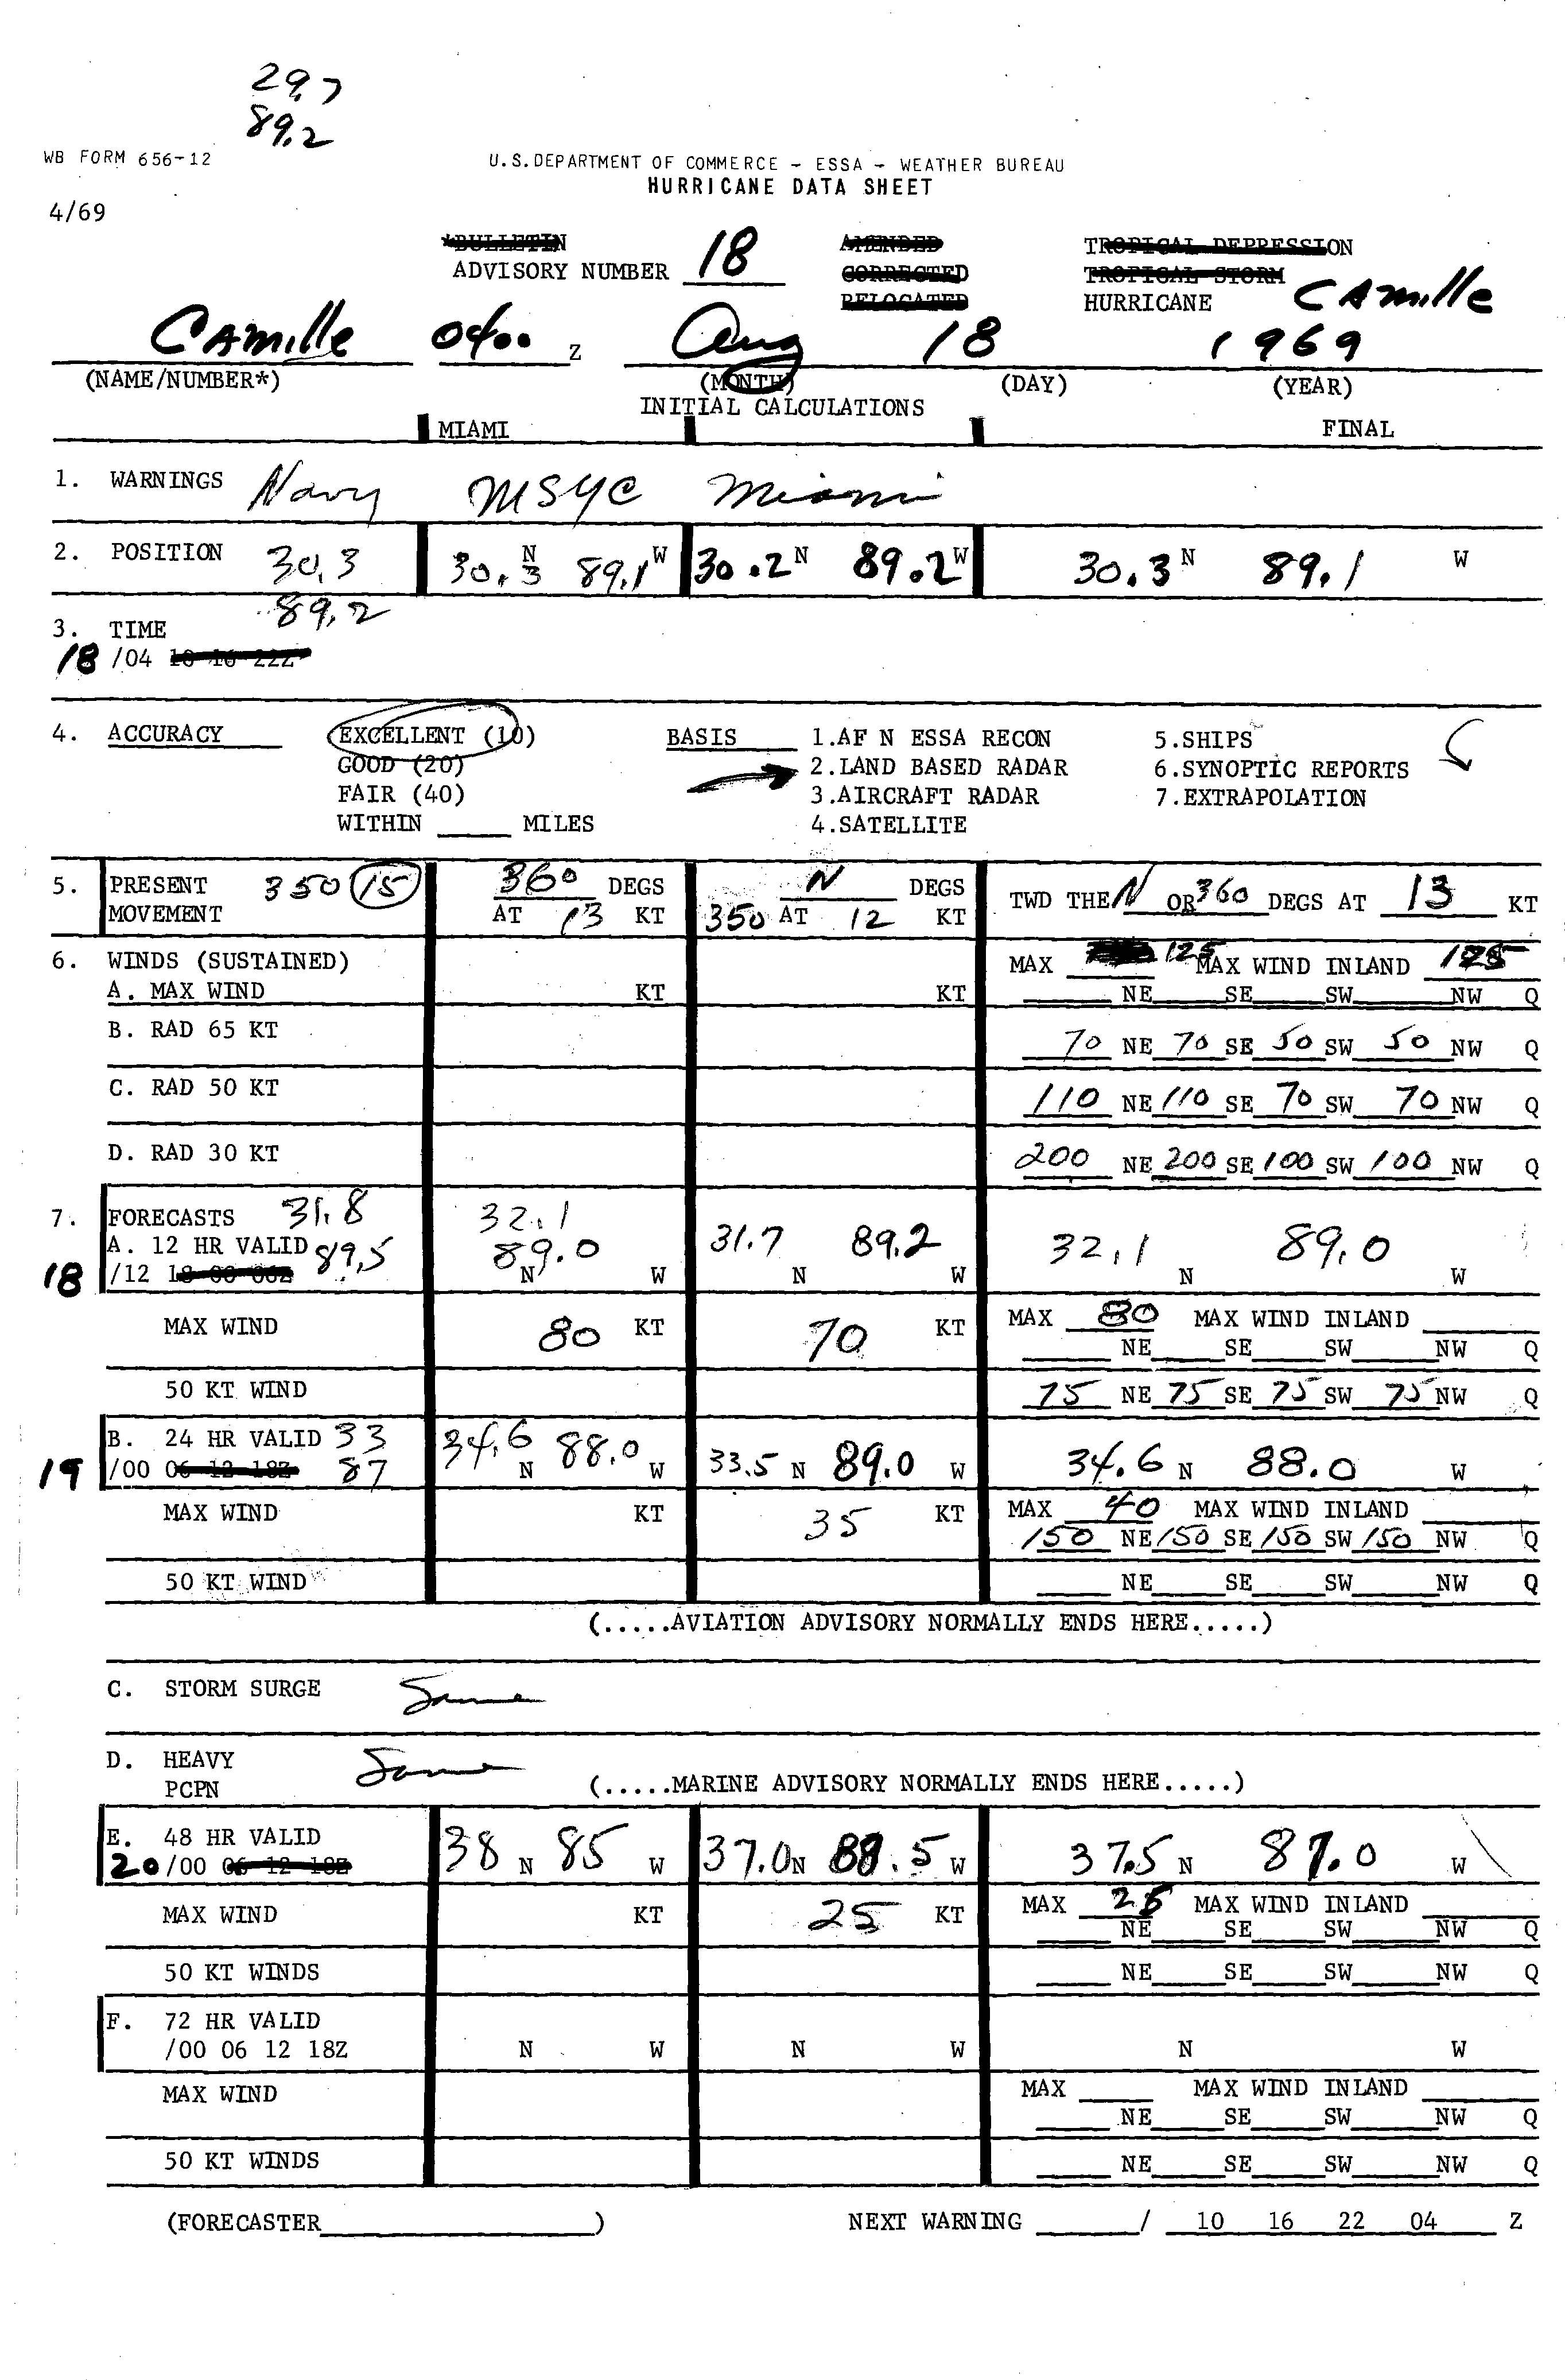 29.7
89.2
WB FORM 656-12
U.S. DEPARTMENT OF COMMERCE - ESSA - WEATHER BUREAU
HURRICANE DATA SHEET
4/69
*BULLETIN AMENDED TROPICAL DEPRESSION
ADVISORY NUMBER 18 CORRECTED TROPICAL STORM
RELOCATED HURRICANE CAmille
CAmille 0400 Z Aug 18 1969
(NAME/NUMBER*) (MONTH) (DAY) (YEAR)
INITIAL CALCULATIONS
MIAMI FINAL
1. WARNINGS Navy MSYC Miami
2. POSITION 30.3 30.3 N 89.1 W 30.2 N 89.2 W 30.3 N 89.1 W
89.2
3. TIME
18 /04 10 16 22Z
4. ACCURACY EXCELLENT (10) BASIS 1.AF N ESSA RECON 5.SHIPS
GOOD (20) 2.LAND BASED RADAR 6.SYNOPTIC REPORTS
FAIR (40) 3.AIRCRAFT RADAR 7.EXTRAPOLATION
WITHIN MILES 4.SATELLITE
5. PRESENT 350 15 360 DEGS N DEGS TWD THE N OR 360 DEGS AT 13 KT
MOVEMENT AT 13 KT 350 AT 12 KT
6. WINDS (SUSTAINED) MAX 125 MAX WIND INLAND 125
A. MAX WIND KT KT NE SE SW NW Q
B. RAD 65 KT 70 NE 70 SE 50 SW 50 NW Q
C. RAD 50 KT 110 NE 110 SE 70 SW 70 NW Q
D. RAD 30 KT 200 NE 200 SE 100 SW 100 NW Q
7. FORECASTS 31.8 32.1 31.7 89.2 32.1 89.0
A. 12 HR VALID 89.5 89.0
18 /12 18 00 06Z N W N W N W
MAX WIND 80 KT 70 KT MAX 80 MAX WIND INLAND
NE SE SW NW Q
50 KT WIND 75 NE 75 SE 75 SW 75 NW Q
B. 24 HR VALID 33 34.6 88.0
19 /00 06 12 18Z 87 N W 33.5 N 89.0 W 34.6 N 88.0 W
MAX WIND KT 35 KT MAX 40 MAX WIND INLAND
150 NE 150 SE 150 SW 150 NW Q
50 KT WIND NE SE SW NW Q
(.....AVIATION ADVISORY NORMALLY ENDS HERE.....)
C. STORM SURGE Same
D. HEAVY Same
PCPN (.....MARINE ADVISORY NORMALLY ENDS HERE.....)
E. 48 HR VALID
20 /00 06 12 18Z 38 N 85 W 37.0 N 88.5 W 37.5 N 87.0 W
MAX WIND KT 25 KT MAX 25 MAX WIND INLAND
NE SE SW NW Q
50 KT WINDS NE SE SW NW Q
F. 72 HR VALID
/00 06 12 18Z N W N W N W
MAX WIND MAX MAX WIND INLAND
NE SE SW NW Q
50 KT WINDS NE SE SW NW Q
(FORECASTER ) NEXT WARNING / 10 16 22 04 Z